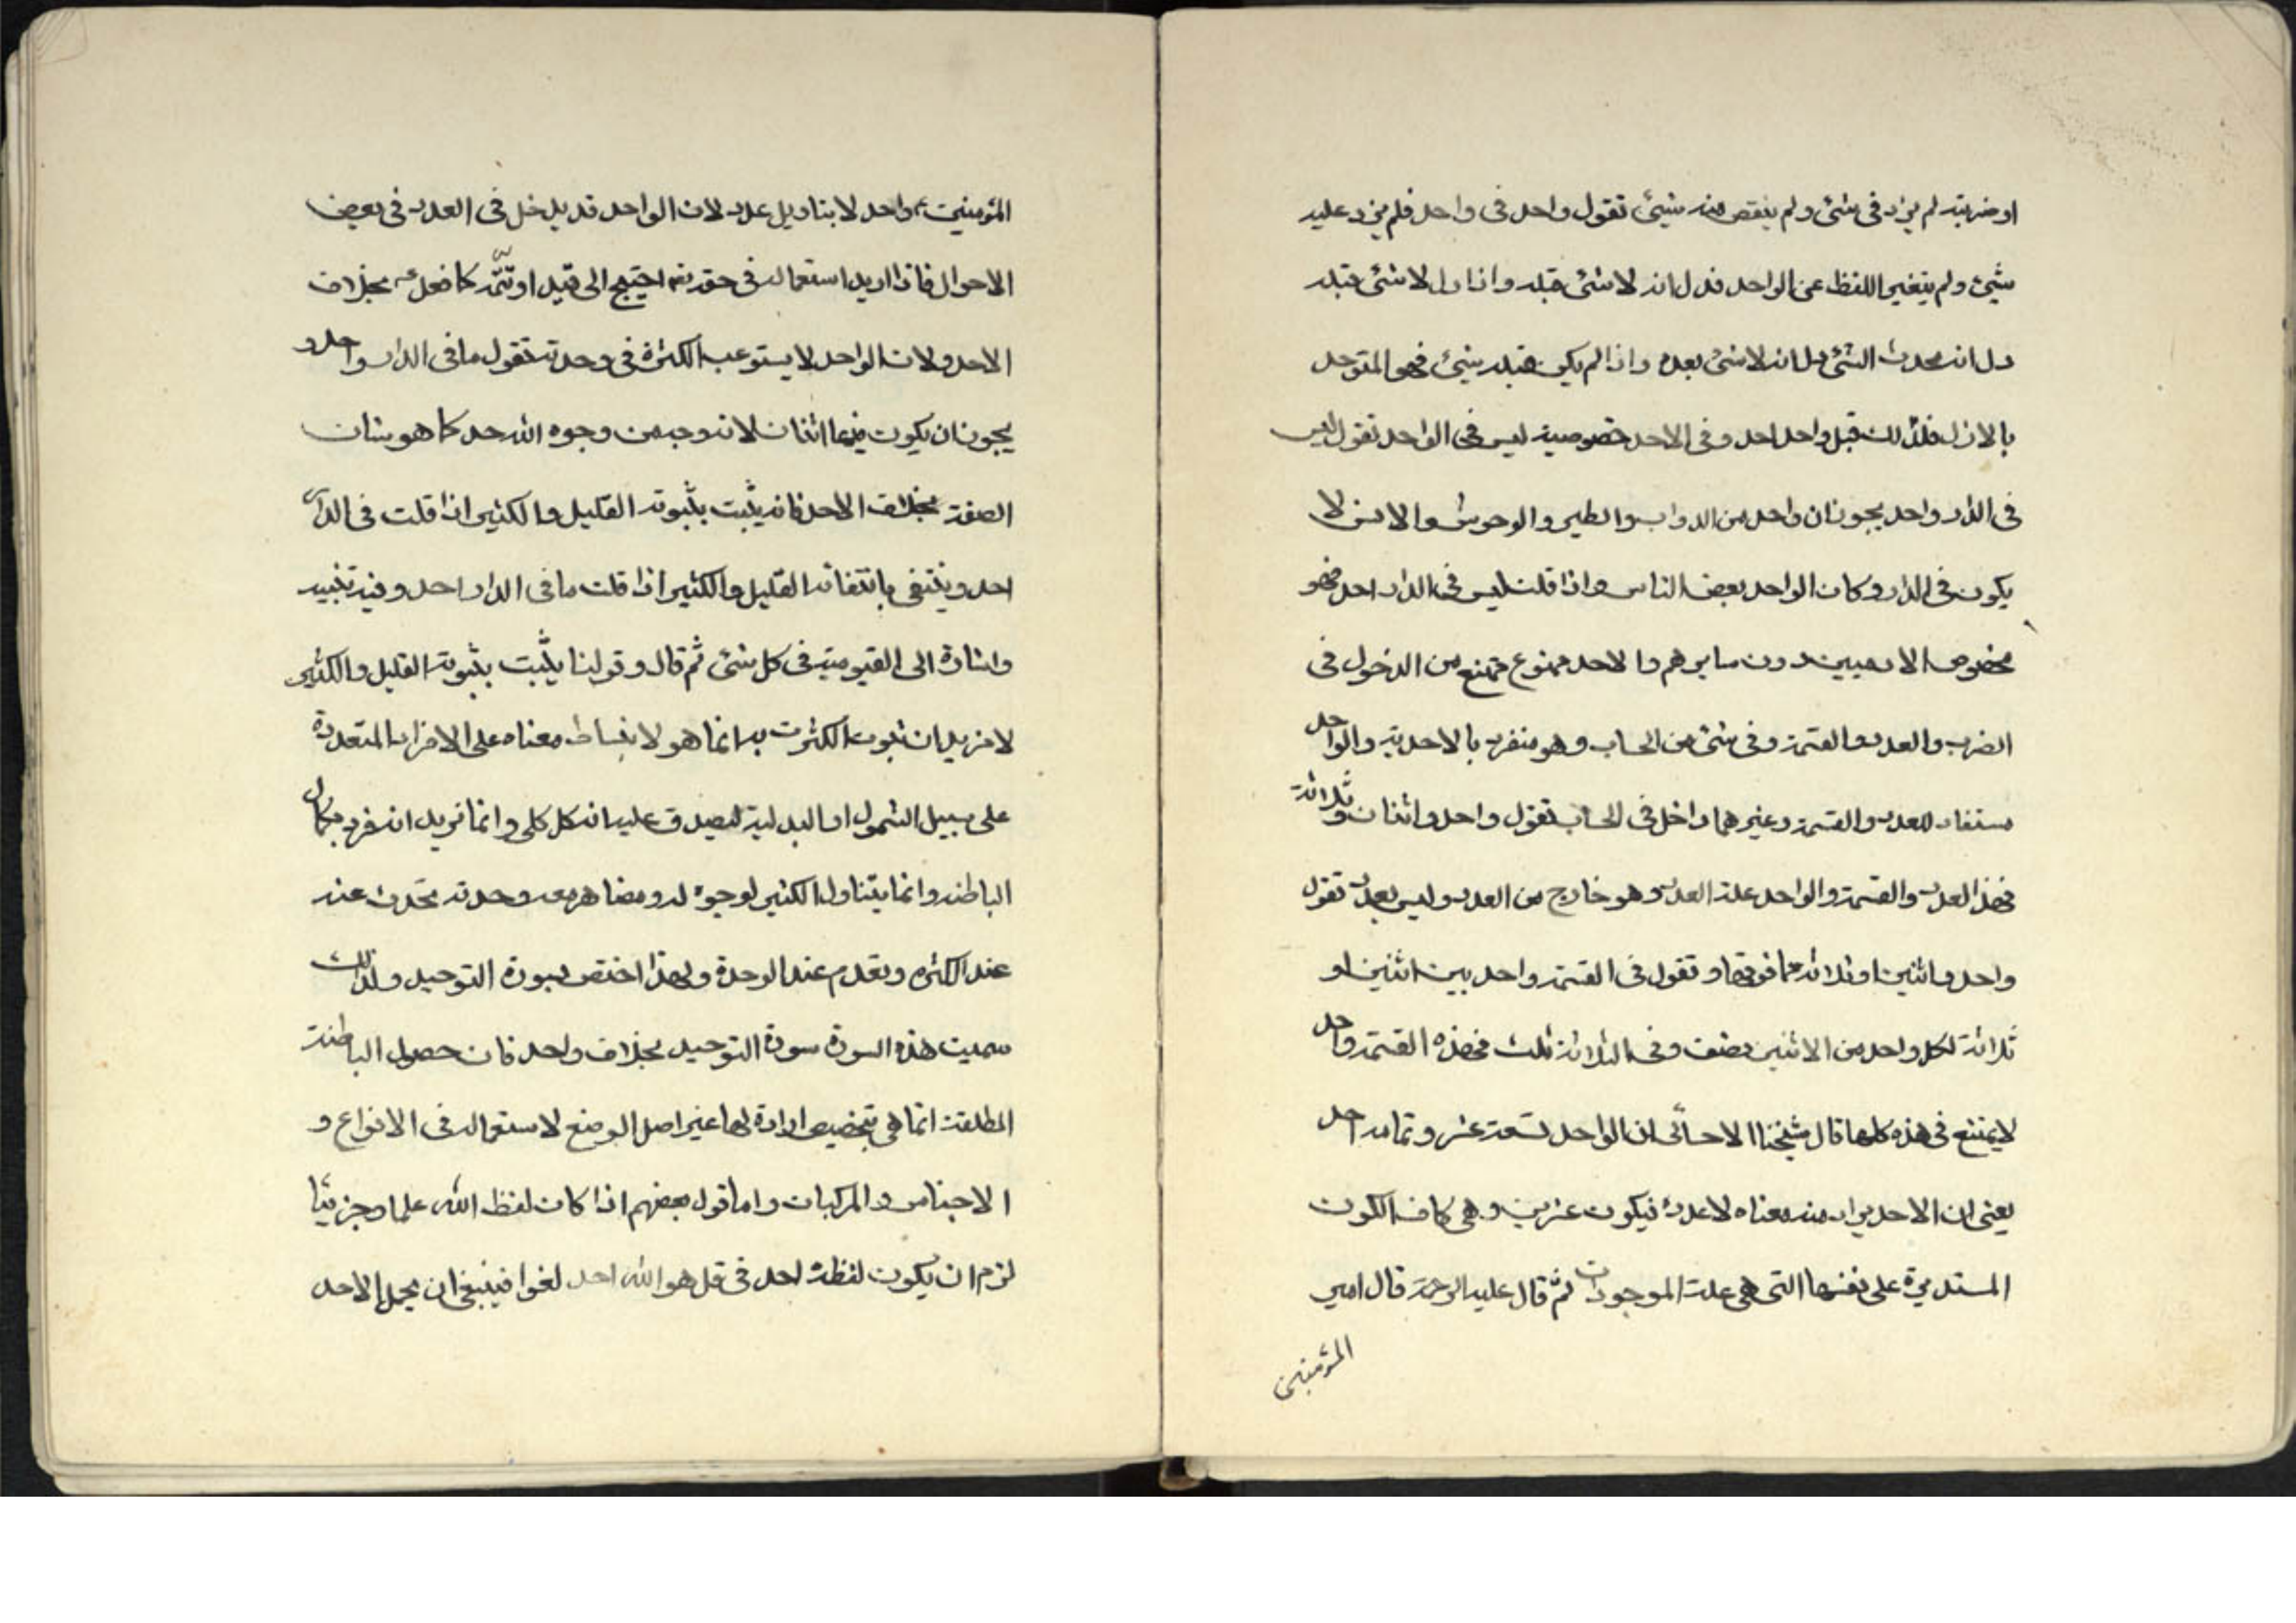 او ضربته لم يزد فى شئ ولم ينقص منه شيئ تقول واحد فى واحد فلم يزد عليه
شيئ ولم يتغير اللفظ عن الواحد فدل انه لا شئ قبله واذا دل لا شئ قبله
دل انه محدث الشئ دل انه لا شئ بعده واذا لم يكن قبله شيئ فهو المتوحد
بالازل فلذلك قيل واحد احد وفى الاحد خصوصية ليس فى الواحد تقول ليس
فى الدار واحد يجوز ان واحد من الدواب والطير والوحوش والانس لا
يكون فى الدار وكان الواحد بعض الناس واذا قلت ليس فى الدار احد فهو
مخصوص الادميين دون سايرهم والاحد ممنوع ممتنع من الدخول فى
الضرب والعدد والقسمة وفى شئ من الحساب وهو منفرد بالاحدية والواحد
مستفاد للعدد والقسمة وغيرهما داخل فى الحساب تقول واحد واثنان وثلاثة
فهذا العدد والقسمة والواحد علة العدد وهو خارج من العدد وليس بعدد تقول
واحد واثنين او ثلاثه مما فوقها وتقول فى القسمة واحد بين اثنين او
ثلاثة لكل واحد من الاثنين نصف وفى الثلاثة ثلث فهذه القسمة واحد
لا يمتنع فى هذه كلها قال شيخنا الاحسائى ان الواحد تسعة عشر وتمامه احد
يعنى ان الاحد يراد منه معناه لا عدده فيكون عشرين وهى كاف الكون
المستديرة على نفسها التى هى علة الموجودات ثم قال عليه الرحمة قال امير
المؤمنين
المؤمنين ع واحد لا بتاويل عدد لان الواحد قد يدخل فى العدد فى بعض
الاحوال فاذا اريد استعماله فى حقه تعه احتيج الى قيد او تتمّه كما فعل ع بخلاف
الاحد ولان الواحد لا يستوعب الكثرة فى وحدته تقول ما فى الدار واحد و
يجوز ان يكون فيها اثنان لانه وجه من وجوه الله حد كما هو شان
الصفة بخلاف الاحد فانه يثبت بثبوته القليل والكثير اذا قلت فى الدار
احد وينتفى بانتفائه القليل والكثير اذا قلت ما فى الدار احد وفيه تنبيه
واشارة الى القيومية فى كل شئ ثم قال وقولنا يثبت بثبوته القليل والكثير
لا نريد ان ثبوت الكثرت به انما هو لانبساط معناه على الافراد المتعددة
على سبيل الشمول او البدلية ليصدق عليه انه كل كلى وانما نريد انه فرد بكمال
الباطنه وانما يتناول الكثير لوجوه له ومضاهر معه وحدته تحدث عند
عند الكثره وتعدم عند الوحدة ولهذا اختص بسورة التوحيد ولذلك
سميت هذه السورة سورة التوحيد بخلاف واحد فان حصول الباطنة
المطلقة انما هى بتخصيص ارادة لها غير اصل الوضع لاستعماله فى الانواع و
الاجناس والمركبات واما قول بعضهم اذا كان لفظ الله علما وجزئيا
لزم ان يكون لفظة احد فى قل هو الله احد لغوا فينبغى ان يحمل الاحد